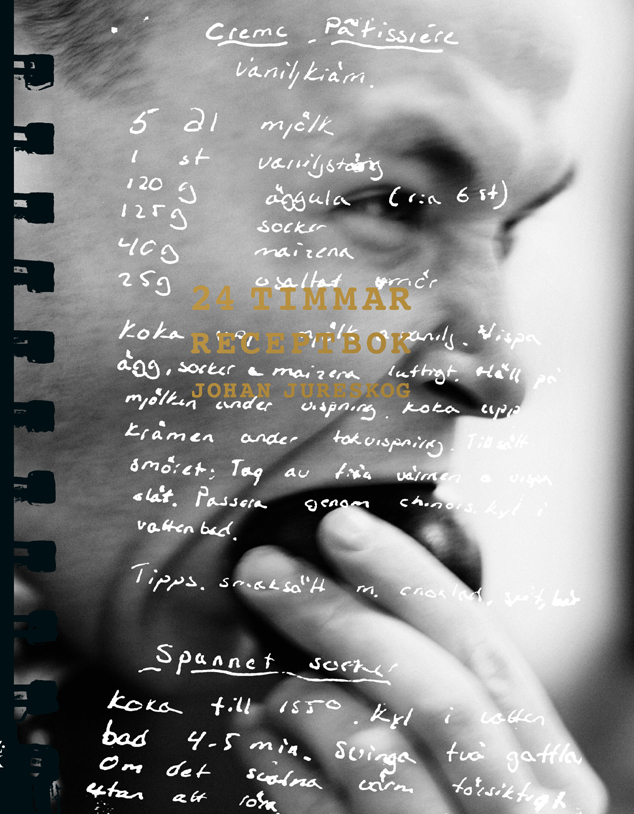 Creme Pâtissiére
Vaniljkräm.
5 dl mjölk
1 st vaniljstång
120 g äggula (c:a 6 st)
125 g socker
40 g maizena
25 g osaltat smör
24 TIMMAR
RECEPTBOK
JOHAN JURESKOG
Koka upp mjölk o vanilj. Vispa
ägg, socker & maizena luftigt. Häll på
mjölken under vispning. Koka upp
krämen under vispning. Tillsätt
smöret. Tag av från värmen o vispa
slät. Passera genom chinois. Kyl i
vattenbad.
Tipps. smaksätt m. choklad, sprit,
Spunnet socker
Koka till 155°. Kyl i vatten
bad 4-5 min. Svinga två gafflar
Om det svalna värm försiktigt
utan att röra